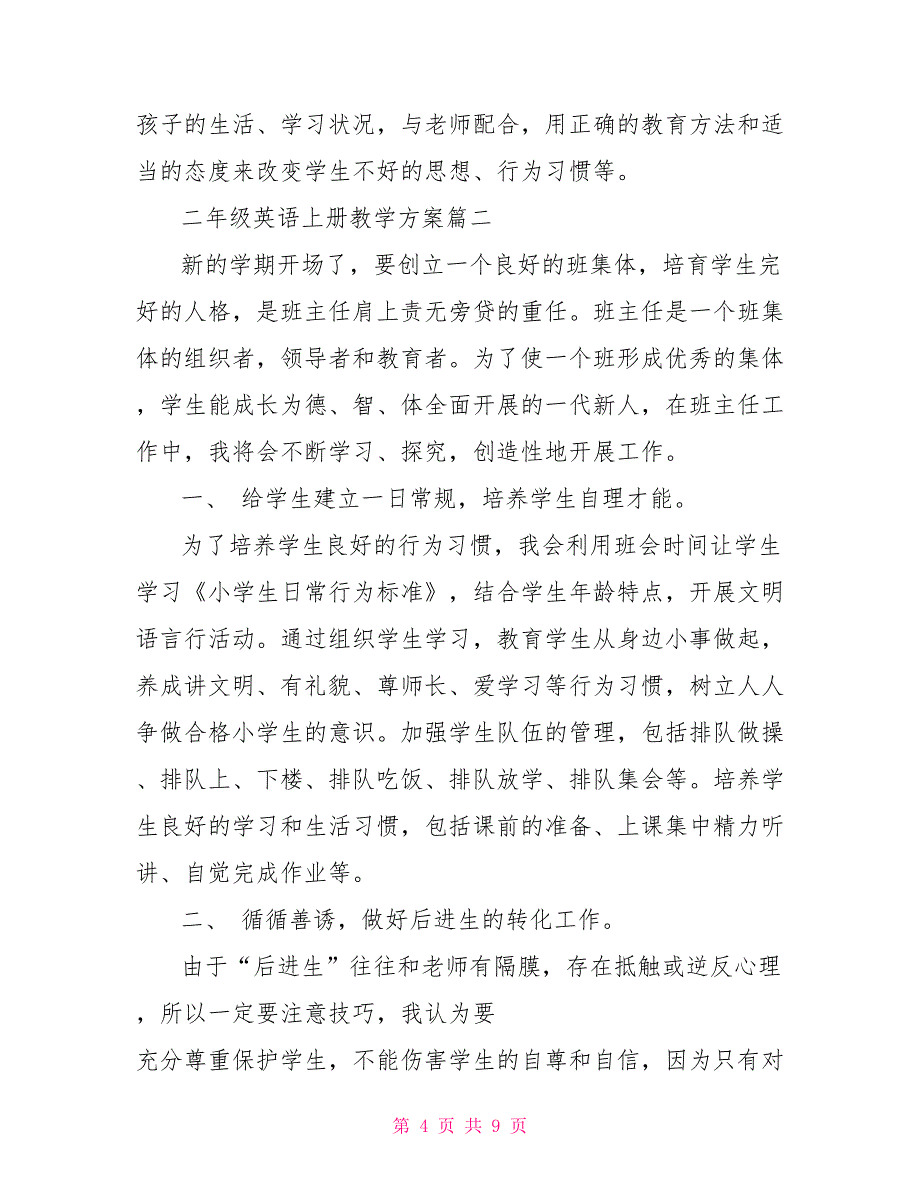 孩子的生活、学习状况，与老师配合，用正确的教育方法和适
当的态度来改变学生不好的思想、行为习惯等。
二年级英语上册教学方案篇二
新的学期开场了，要创立一个良好的班集体，培育学生完
好的人格，是班主任肩上责无旁贷的重任。班主任是一个班集
体的组织者，领导者和教育者。为了使一个班形成优秀的集体
，学生能成长为德、智、体全面开展的一代新人，在班主任工
作中，我将会不断学习、探究，创造性地开展工作。
一、 给学生建立一日常规，培养学生自理才能。
为了培养学生良好的行为习惯，我会利用班会时间让学生
学习《小学生日常行为标准》，结合学生年龄特点，开展文明
语言行活动。通过组织学生学习，教育学生从身边小事做起，
养成讲文明、有礼貌、尊师长、爱学习等行为习惯，树立人人
争做合格小学生的意识。加强学生队伍的管理，包括排队做操
、排队上、下楼、排队吃饭、排队放学、排队集会等。培养学
生良好的学习和生活习惯，包括课前的准备、上课集中精力听
讲、自觉完成作业等。
二、 循循善诱，做好后进生的转化工作。
由于“后进生”往往和老师有隔膜，存在抵触或逆反心理
，所以一定要注意技巧，我认为要
充分尊重保护学生，不能伤害学生的自尊和自信，因为只有对
第 4 页 共 9 页